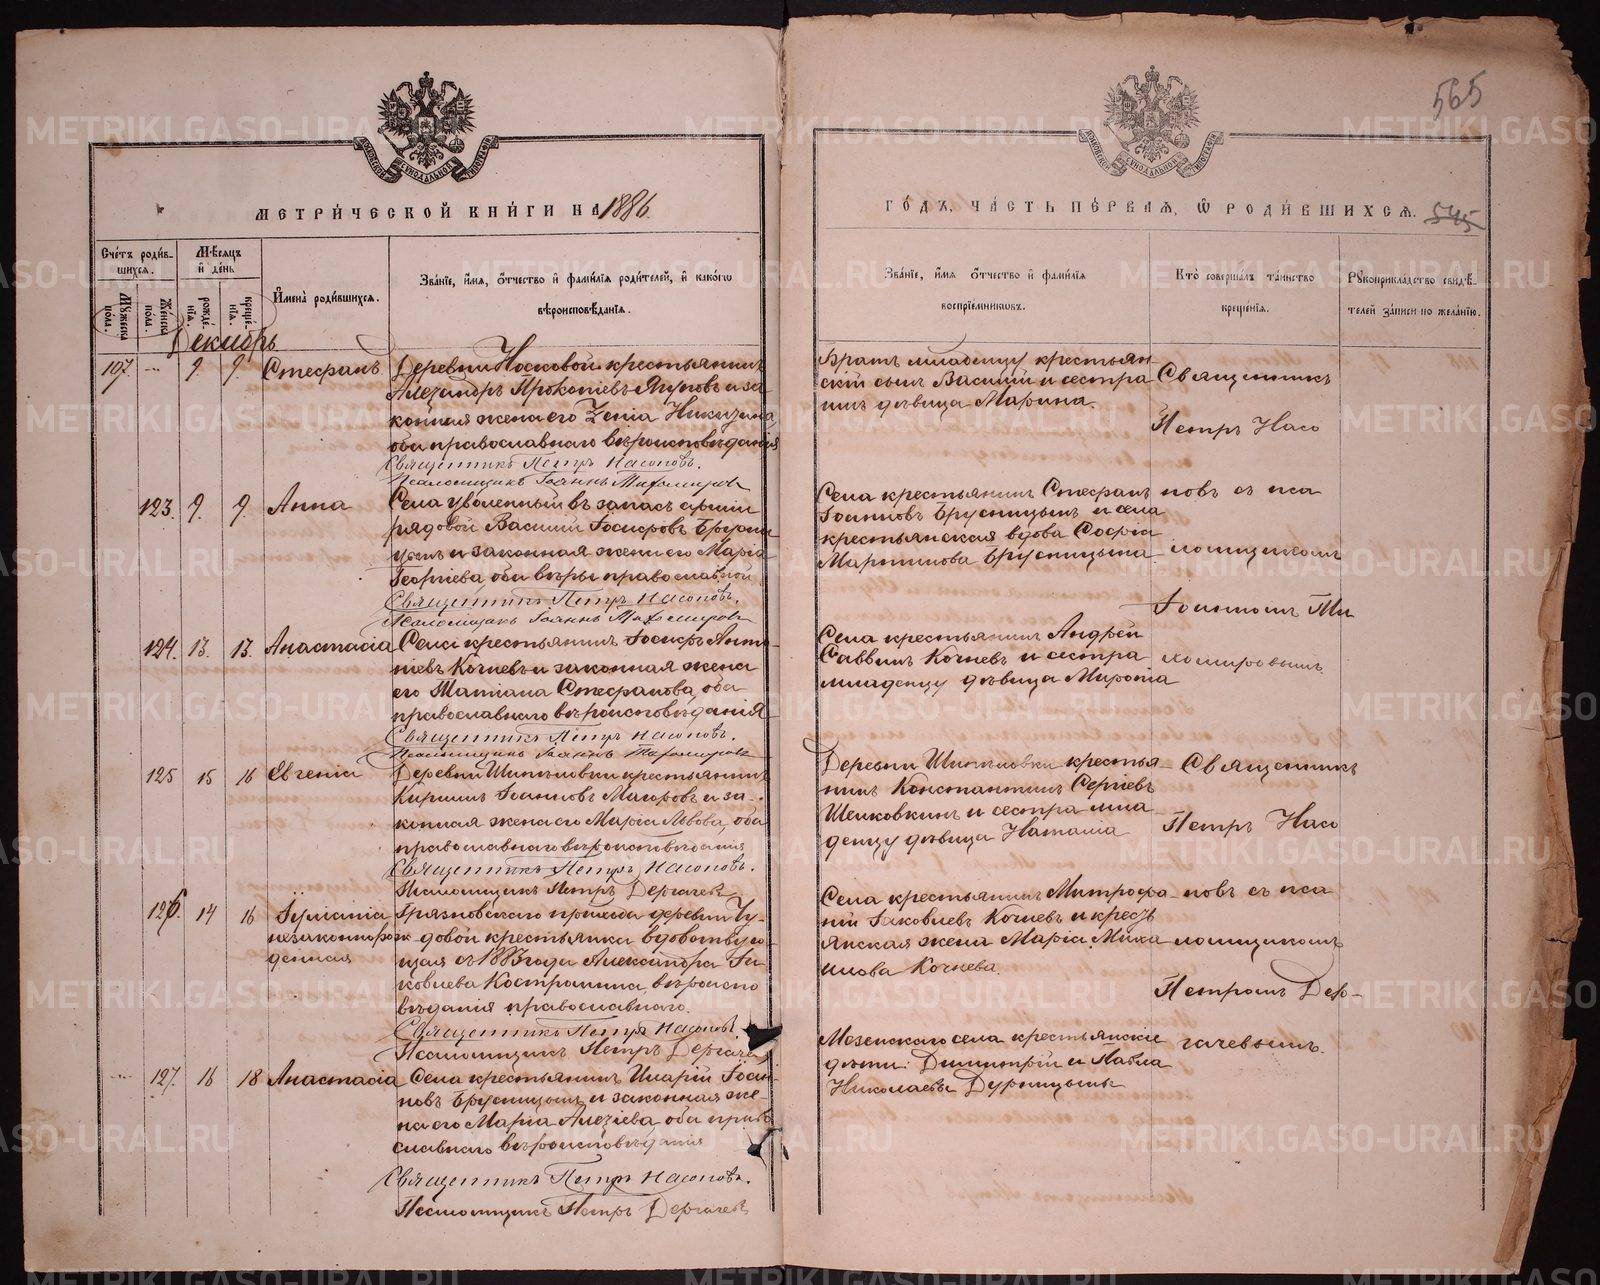 565
МОСКОВСКОЙ СѴНОДАЛЬНОЙ ТИПОГРАФІИ
МОСКОВСКОЙ СѴНОДАЛЬНОЙ ТИПОГРАФІИ
МЕТРИ́ЧЕСКОЙ КНИ́ГИ НА 1886
ГО́ДЪ, ЧА́СТЬ ПЕ́РВАЯ, Ѡ РОДИ́ВШИХСЯ. 545
Сче́тъ роди́вшихся.
Му́жеска по́ла.
Же́нска по́ла.
Мѣ́сяцъ и҆ де́нь
рожде́нїѧ.
креще́нїѧ.
И҆мена̀ роди́вшихся.
Зва́нїе, и҆́мѧ, ѻ҆́тчество и҆ фами́лїѧ роди́телей, и҆ како́гѡ
вѣроисповѣ́данїѧ.
Зва́нїе, и҆́мѧ ѻ҆́тчество и҆ фами́лїѧ
воспрїе́мниковъ.
Кто̀ соверша́лъ та́инство
креще́нїѧ.
Рꙋкоприкла́дство свидѣ́-
телей за́писи по жела́нїю.
Декабрь
107. 9. 9. Стефанъ
Деревни Носковой крестьянинъ
Александръ Прокопіевъ Ягуповъ и за
конная жена его Никизина,
оба православнаго вѣроисповѣданія
Священникъ Петръ Насоновъ.
Псаломщикъ Іоаннъ Тихомировъ
Братъ младенцу крестьян
скій сынъ Василій и сестра
дѣвица Марина.
Священникъ
Петръ Насо
123. 9. 9. Анна
Села уволенный въ запасъ арміи
рядовой Василій Іосифовъ Брусни
цынъ и законная жена его Марія
Георгіева, оба вѣры православной
Священникъ Петръ Насоновъ.
Псаломщикъ Іоаннъ Тихомировъ
Села крестьянинъ Стефанъ
Іоанновъ Брусницынъ и села
крестьянская вдова Софія
Мартинова Брусницына
новъ съ пса
ломщикомъ
Іоанномъ Ти
124. 13. 13. Анастасія
Села крестьянинъ Іосифъ Анто
ніевъ Кочневъ и законная жена
его Татіана Стефанова, оба
православнаго вѣроисповѣданія
Священникъ Петръ Насоновъ.
Псаломщикъ Іоаннъ Тихомировъ
Села крестьянинъ Андрей
Саввинъ Кочневъ и сестра
младенцу дѣвица
хомировымъ
125 15 16 Евгенія
Деревни крестьянинъ
Кириллъ Іоанновъ и за-
конная жена его Марія Львова, оба
православнаго вѣроисповѣданія
Священникъ Петръ Насоновъ.
Псаломщикъ Петръ Дергачевъ
Деревни крестья
нинъ Константинъ Сергіевъ
и сестра мла
денцу дѣвица Наталія
Священникъ
Петръ Насо
126. 14 16 Іуліанія
незаконнорож
денная
Грязновскаго прихода деревни Чу-
довой крестьянки вдовствую
щая съ 1883 года Александра Іа
ковлева Костромина, вѣроиспо
вѣданія православнаго.
Священникъ Петръ Насоновъ
Псаломщикъ Петръ Дергачевъ
Села крестьянинъ Митрофа
ній Іаковлевъ Кочневъ и кресть
янская жена Марія Миха
илова Кочнева.
новъ съ пса
ломщикомъ
Петромъ Дер-
127. 16 18 Анастасія
Села крестьянинъ Иларій Іоан
новъ Брусницынъ и законная же-
на его Марія Алексіева, оба право
славнаго вѣроисповѣданія
Священникъ Петръ Насоновъ.
Псаломщикъ Петръ Дергачевъ
села крестьянскіе
дѣти: Димитрій и Павла
Николаевы Дурницыны
гачевымъ.
METRIKI.GASO-URAL.RU